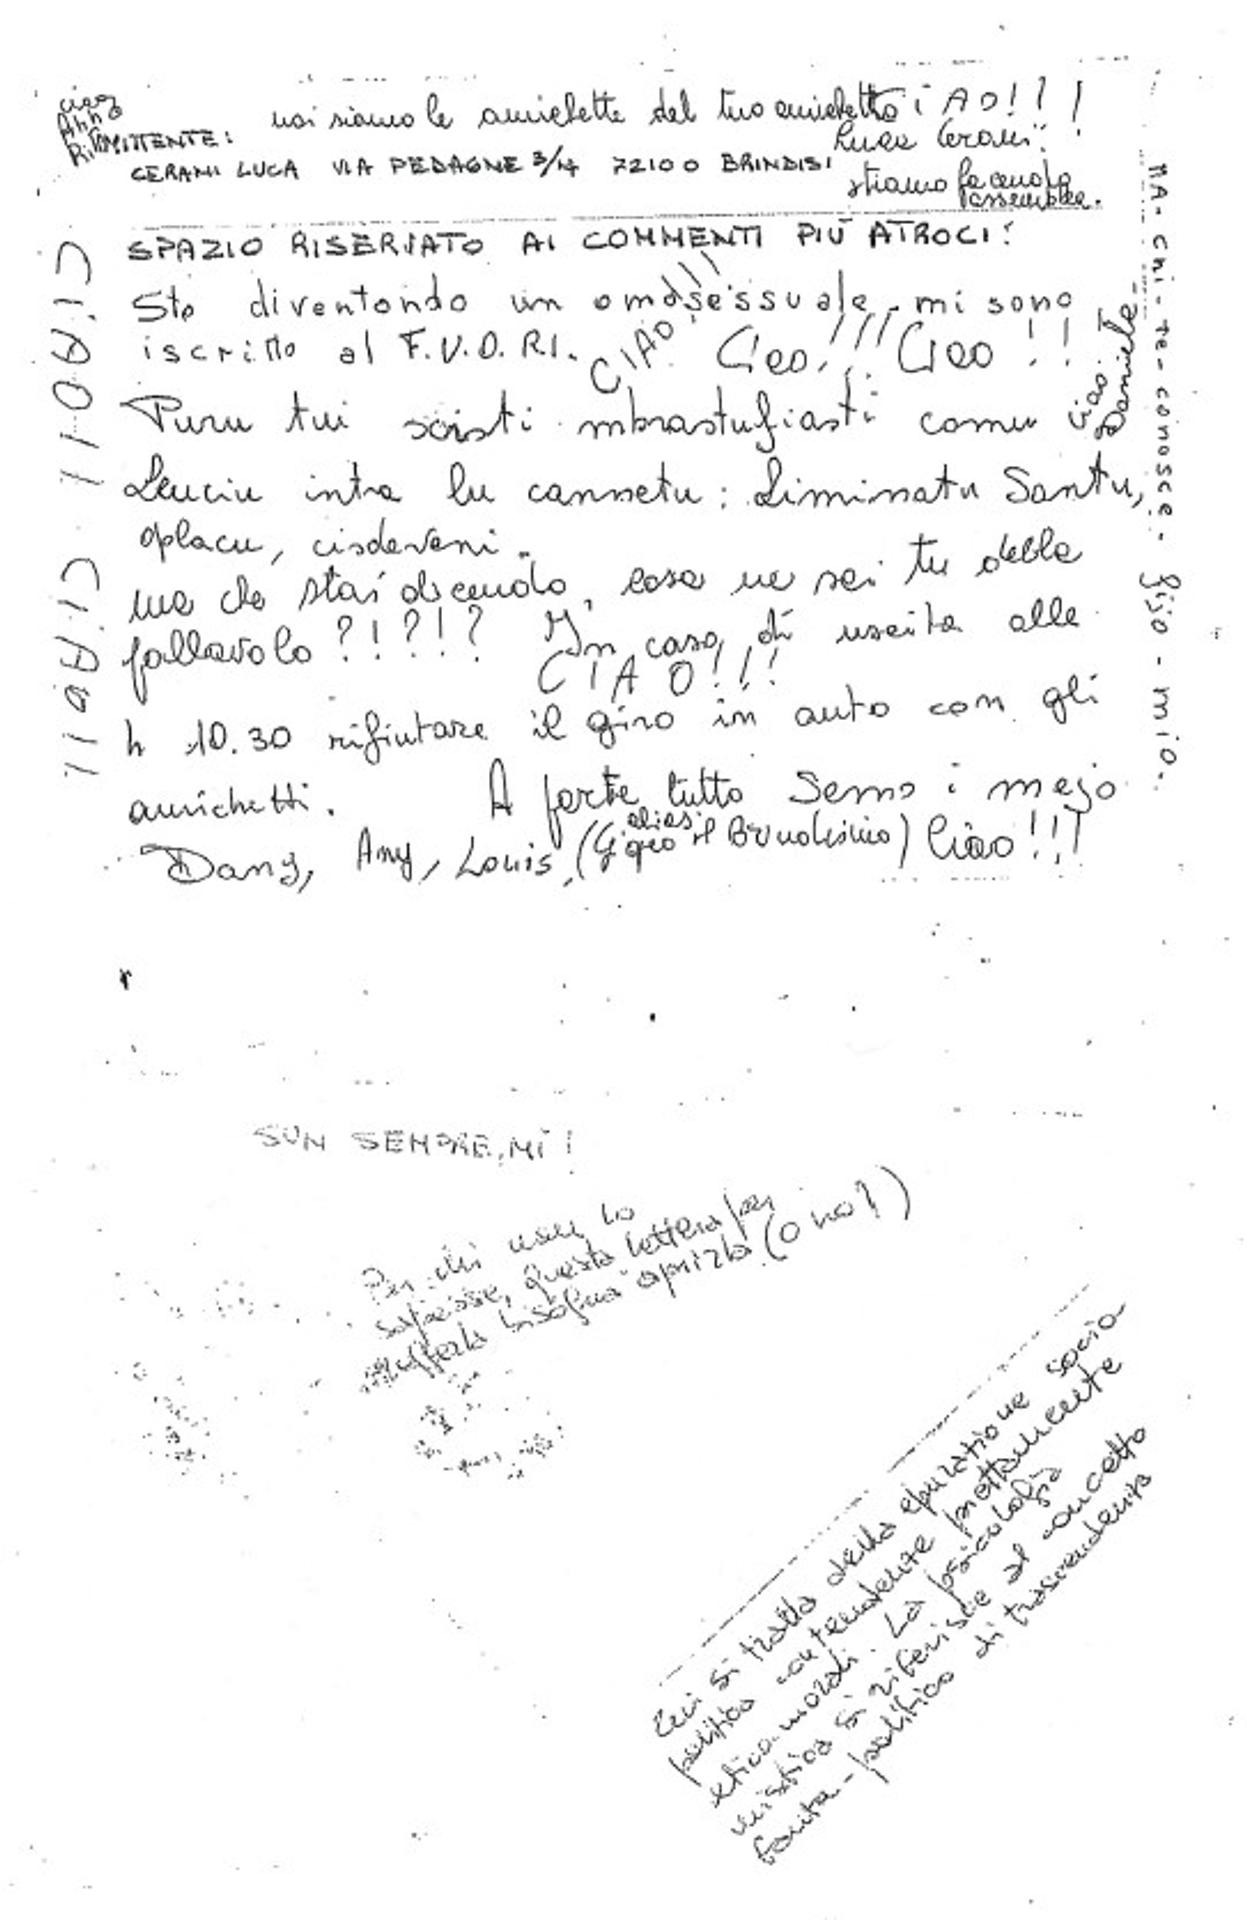 ciao
Anna
noi siamo le amichette del tuo amichetto
CIAO!!!
Luca Cerani!!
RIMITTENTE:
CERANI LUCA VIA PEDAGNE 3/4 72100 BRINDISI
stiamo facendo
assemblea.
SPAZIO RISERVATO AI COMMENTI PIÙ ATROCI:
Sto diventando un omosessuale, mi sono
iscritto al F.V.O.R.I.
CIAO!!! Ciao!!! Ciao!!
Puru tui scisti mbrastufiasti comu
Leuciu intra lu cannetu: Liminatu Santu,
oplacu, cisdeveni.
ma che stai dicendo, cosa ne sai tu della
pallavolo ?!?!? In caso di uscita alle
CIAO!!!
h 10.30 rifiutare il giro in auto con gli
amichetti. A parte tutto Semo i mejo
Dany, Any, Louis, (alias Gigio il Brundisino) Ciao!!!
CIAO!! CIAO!!
ciao
Daniele
MA-chi-te-conosce-fijo-mio.
SUM SEMPRE, MI!
Per chi non lo
sapesse, questa lettera per
leggerla bisogna aprirla (o no?)
Qui si tratta della epurazione socio
politica contendente prettamente
etico-morali. La psicologia
mistica si riferisce al concetto
-politico di trascendenza